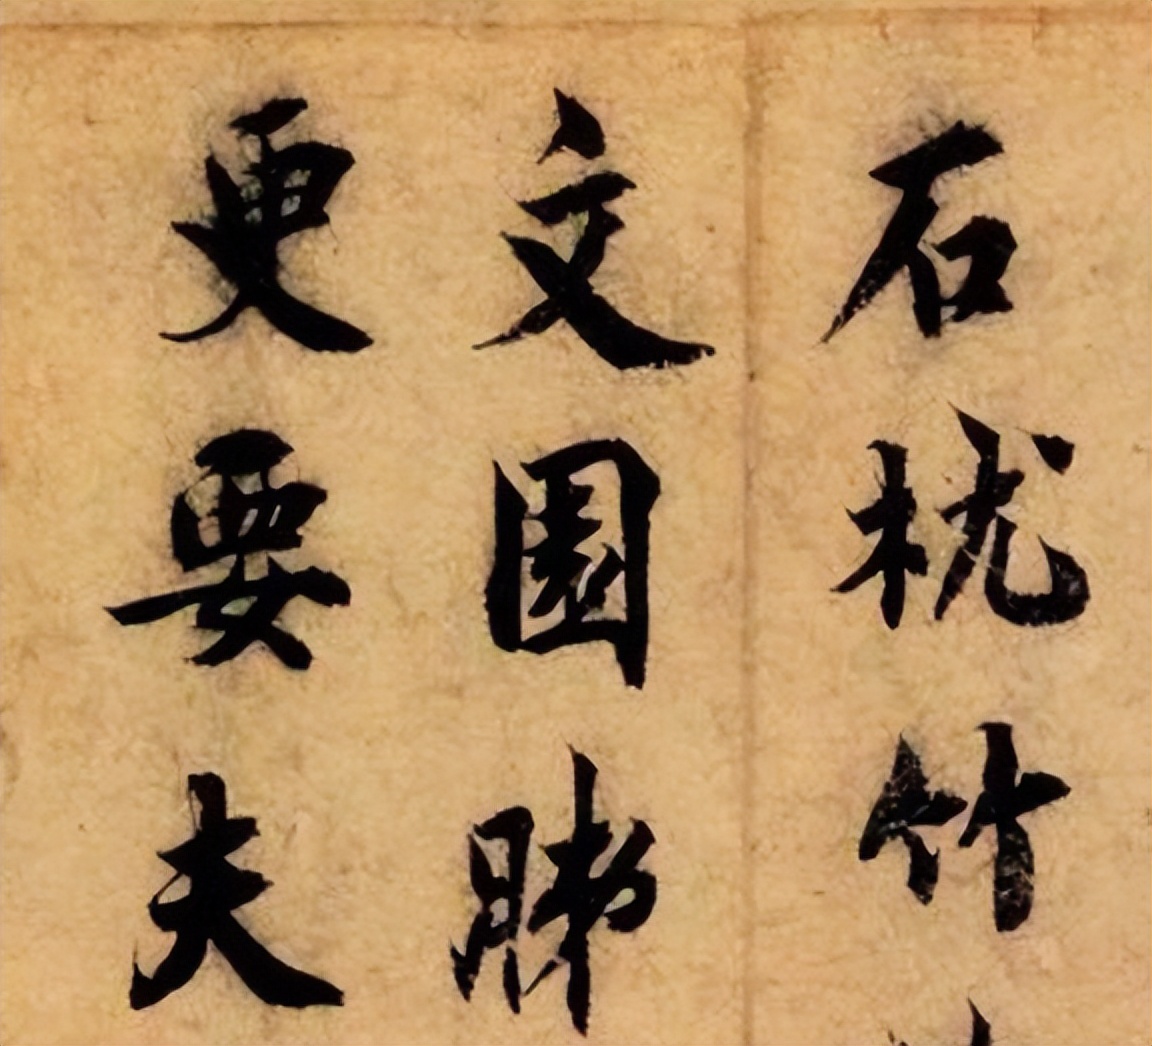 石枕竹
文園肺
更要夫